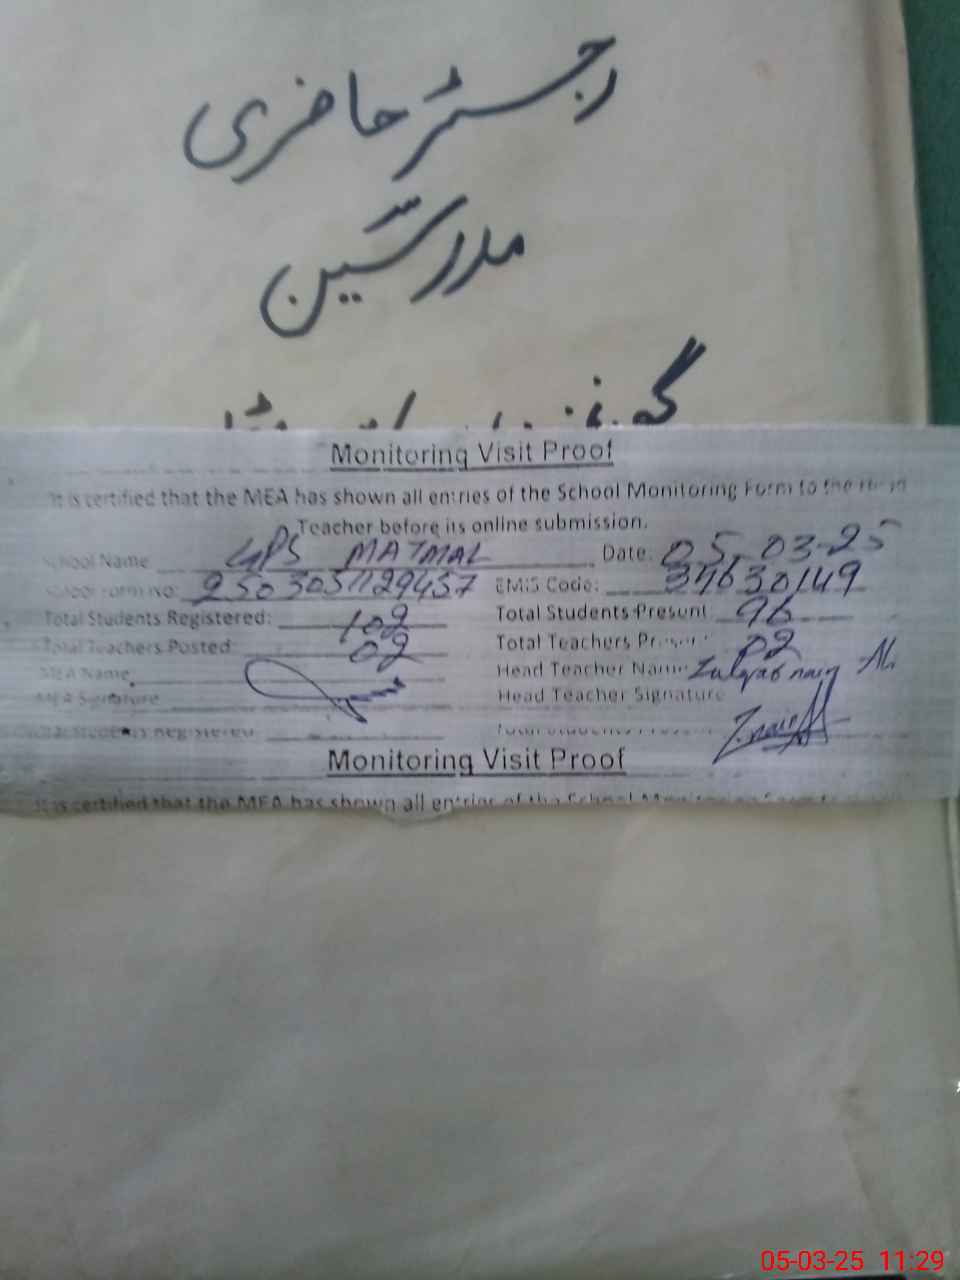 رجسٹر حاضری
مدرسین
Monitoring Visit Proof
It is certified that the MEA has shown all entries of the School Monitoring Form to the Head
Teacher before its online submission.
School Name GPS MATMAL Date: 05-03-25
School Form No: 2503051129457 EMIS Code: 37630149
Total Students Registered: 102 Total Students Present 96
Total Teachers Posted: 02 Total Teachers Present 02
MEA Name Head Teacher Name Zulqarnain Ali
MEA Signature Head Teacher Signature
Total Students Registered Total Students Present
Monitoring Visit Proof
It is certified that the MEA has shown all entries of the School Monitoring Form to
05-03-25 11:29